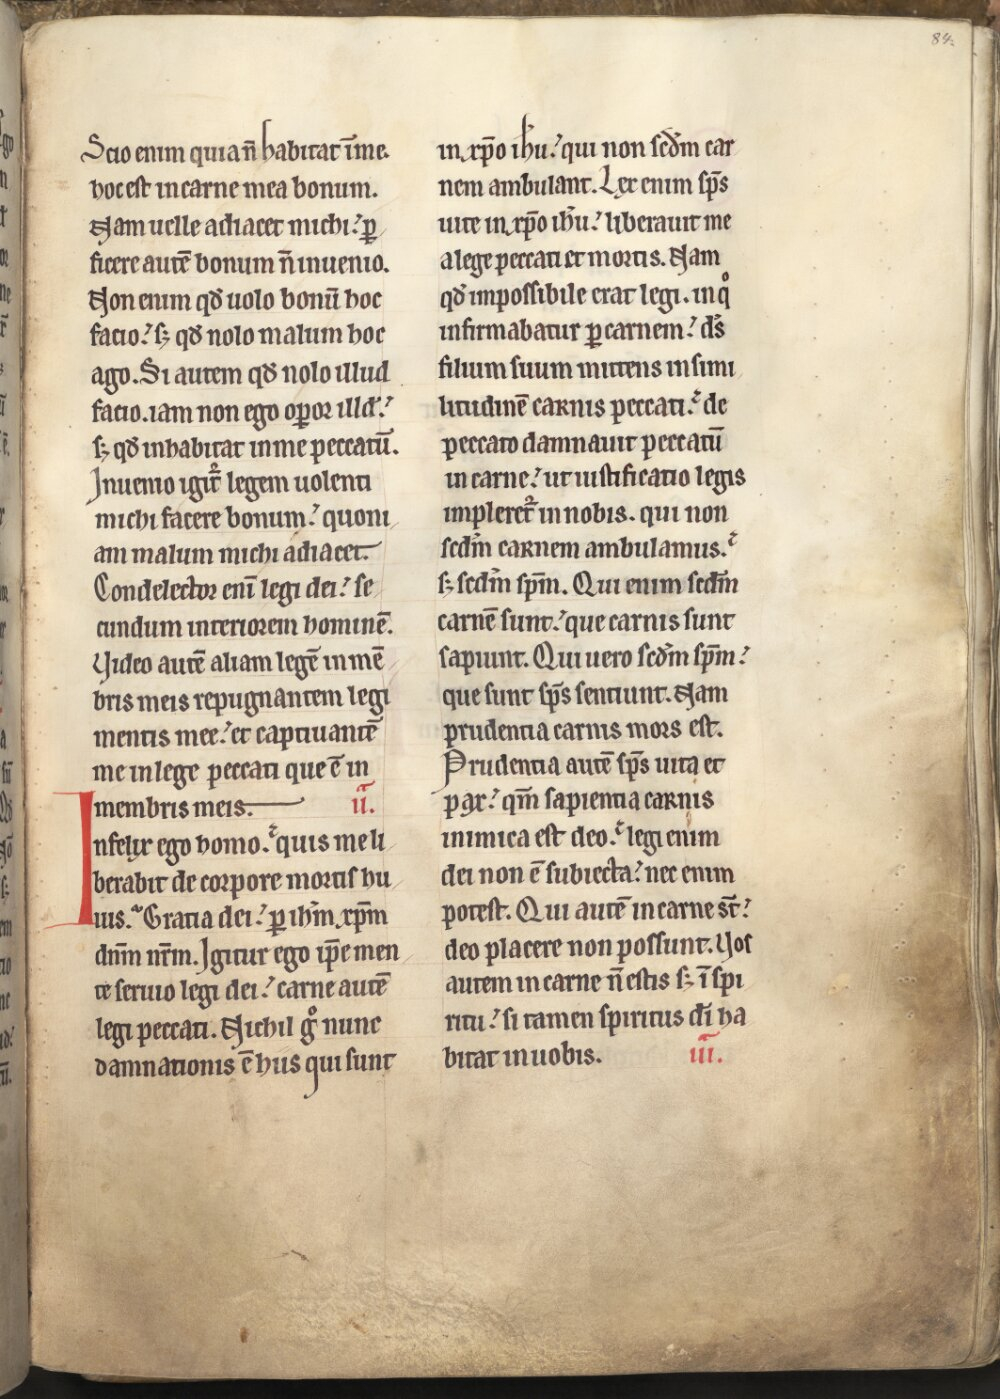 84.
Scio enim quia n̄ habitat ī me.
hoc est in carne mea bonum.
Nam uelle adiacet michi.᾿ ꝑ
ficere autē bonum n̄ inuenio.
Non enim qđ uolo bonū hoc
facio.᾿ sꝫ qđ nolo malum hoc
ago. Si autem qđ nolo illud
facio. iam non ego oꝑor illđ.᾿
sꝫ qđ inhabitat in me peccatū.
Inuenio igit᷑ legem uolenti
michi facere bonum.᾿ quoni
am malum michi adiacet.
Condelector enī legi dei.᾿ se
cundum interiorem hominē.
Video autē aliam legē in mē
bris meis repugnantem legi
mentis mee.᾿ et captiuantē
me in lege peccati que ē in
membris meis. II.
Infelix ego homo.᾿ quis me li
berabit de corpore mortis hu
ius.᾿ Gratia dei.᾿ ꝑ ihm̄ xp̄m
dnm̄ nr̄m. Igitur ego ip̄e men
te seruio legi dei.᾿ carne autē
legi peccati. Nichil gͦ nunc
damnationis ē hiis qui sunt
in xp̄o ihu̅.᾿ qui non scđm car
nem ambulant. Lex enim sp̄s
uite in xp̄o ihu̅.᾿ liberauit me
a lege peccati et mortis. Nam
qđ impossibile erat legi. in qͦ
infirmabatur ꝑ carnem.᾿ ds̄
filium suum mittens in simi
litudinē carnis peccati.᾿ de
peccato damnauit peccatū
in carne.᾿ ut iustificatio legis
impleret᷑ in nobis. qui non
scđm carnem ambulamus.᾿
sꝫ scđm sp̄m. Qui enim scđm
carnē sunt.᾿ que carnis sunt
sapiunt. Qui uero scđm sp̄m.᾿
que sunt sp̄s sentiunt. Nam
prudentia carnis mors est.
Prudentia autē sp̄s uita et
pax.᾿ qm̄ sapientia carnis
inimica est deo.᾿ legi enim
dei non ē subiecta.᾿ nec enim
potest. Qui autē in carne st̄.᾿
deo placere non possunt. Vos
autem in carne n̄ estis sꝫ ī spi
ritu.᾿ si tamen spiritus dī ha
bitat in uobis. III.